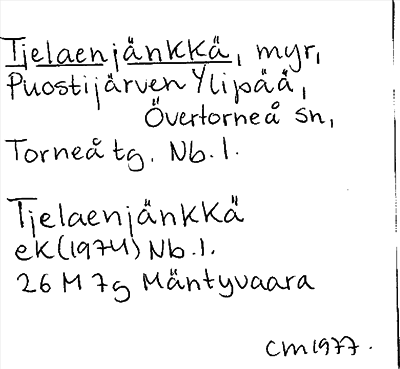 Tjelaenjänkkä, myr,
Puostijärven Ylipää,
Övertorneå sn,
Torneå tg. Nb. l.
Tjelaenjänkkä
ek (1974) Nb. l.
26 M 7g Mäntyvaara
CM 1977.